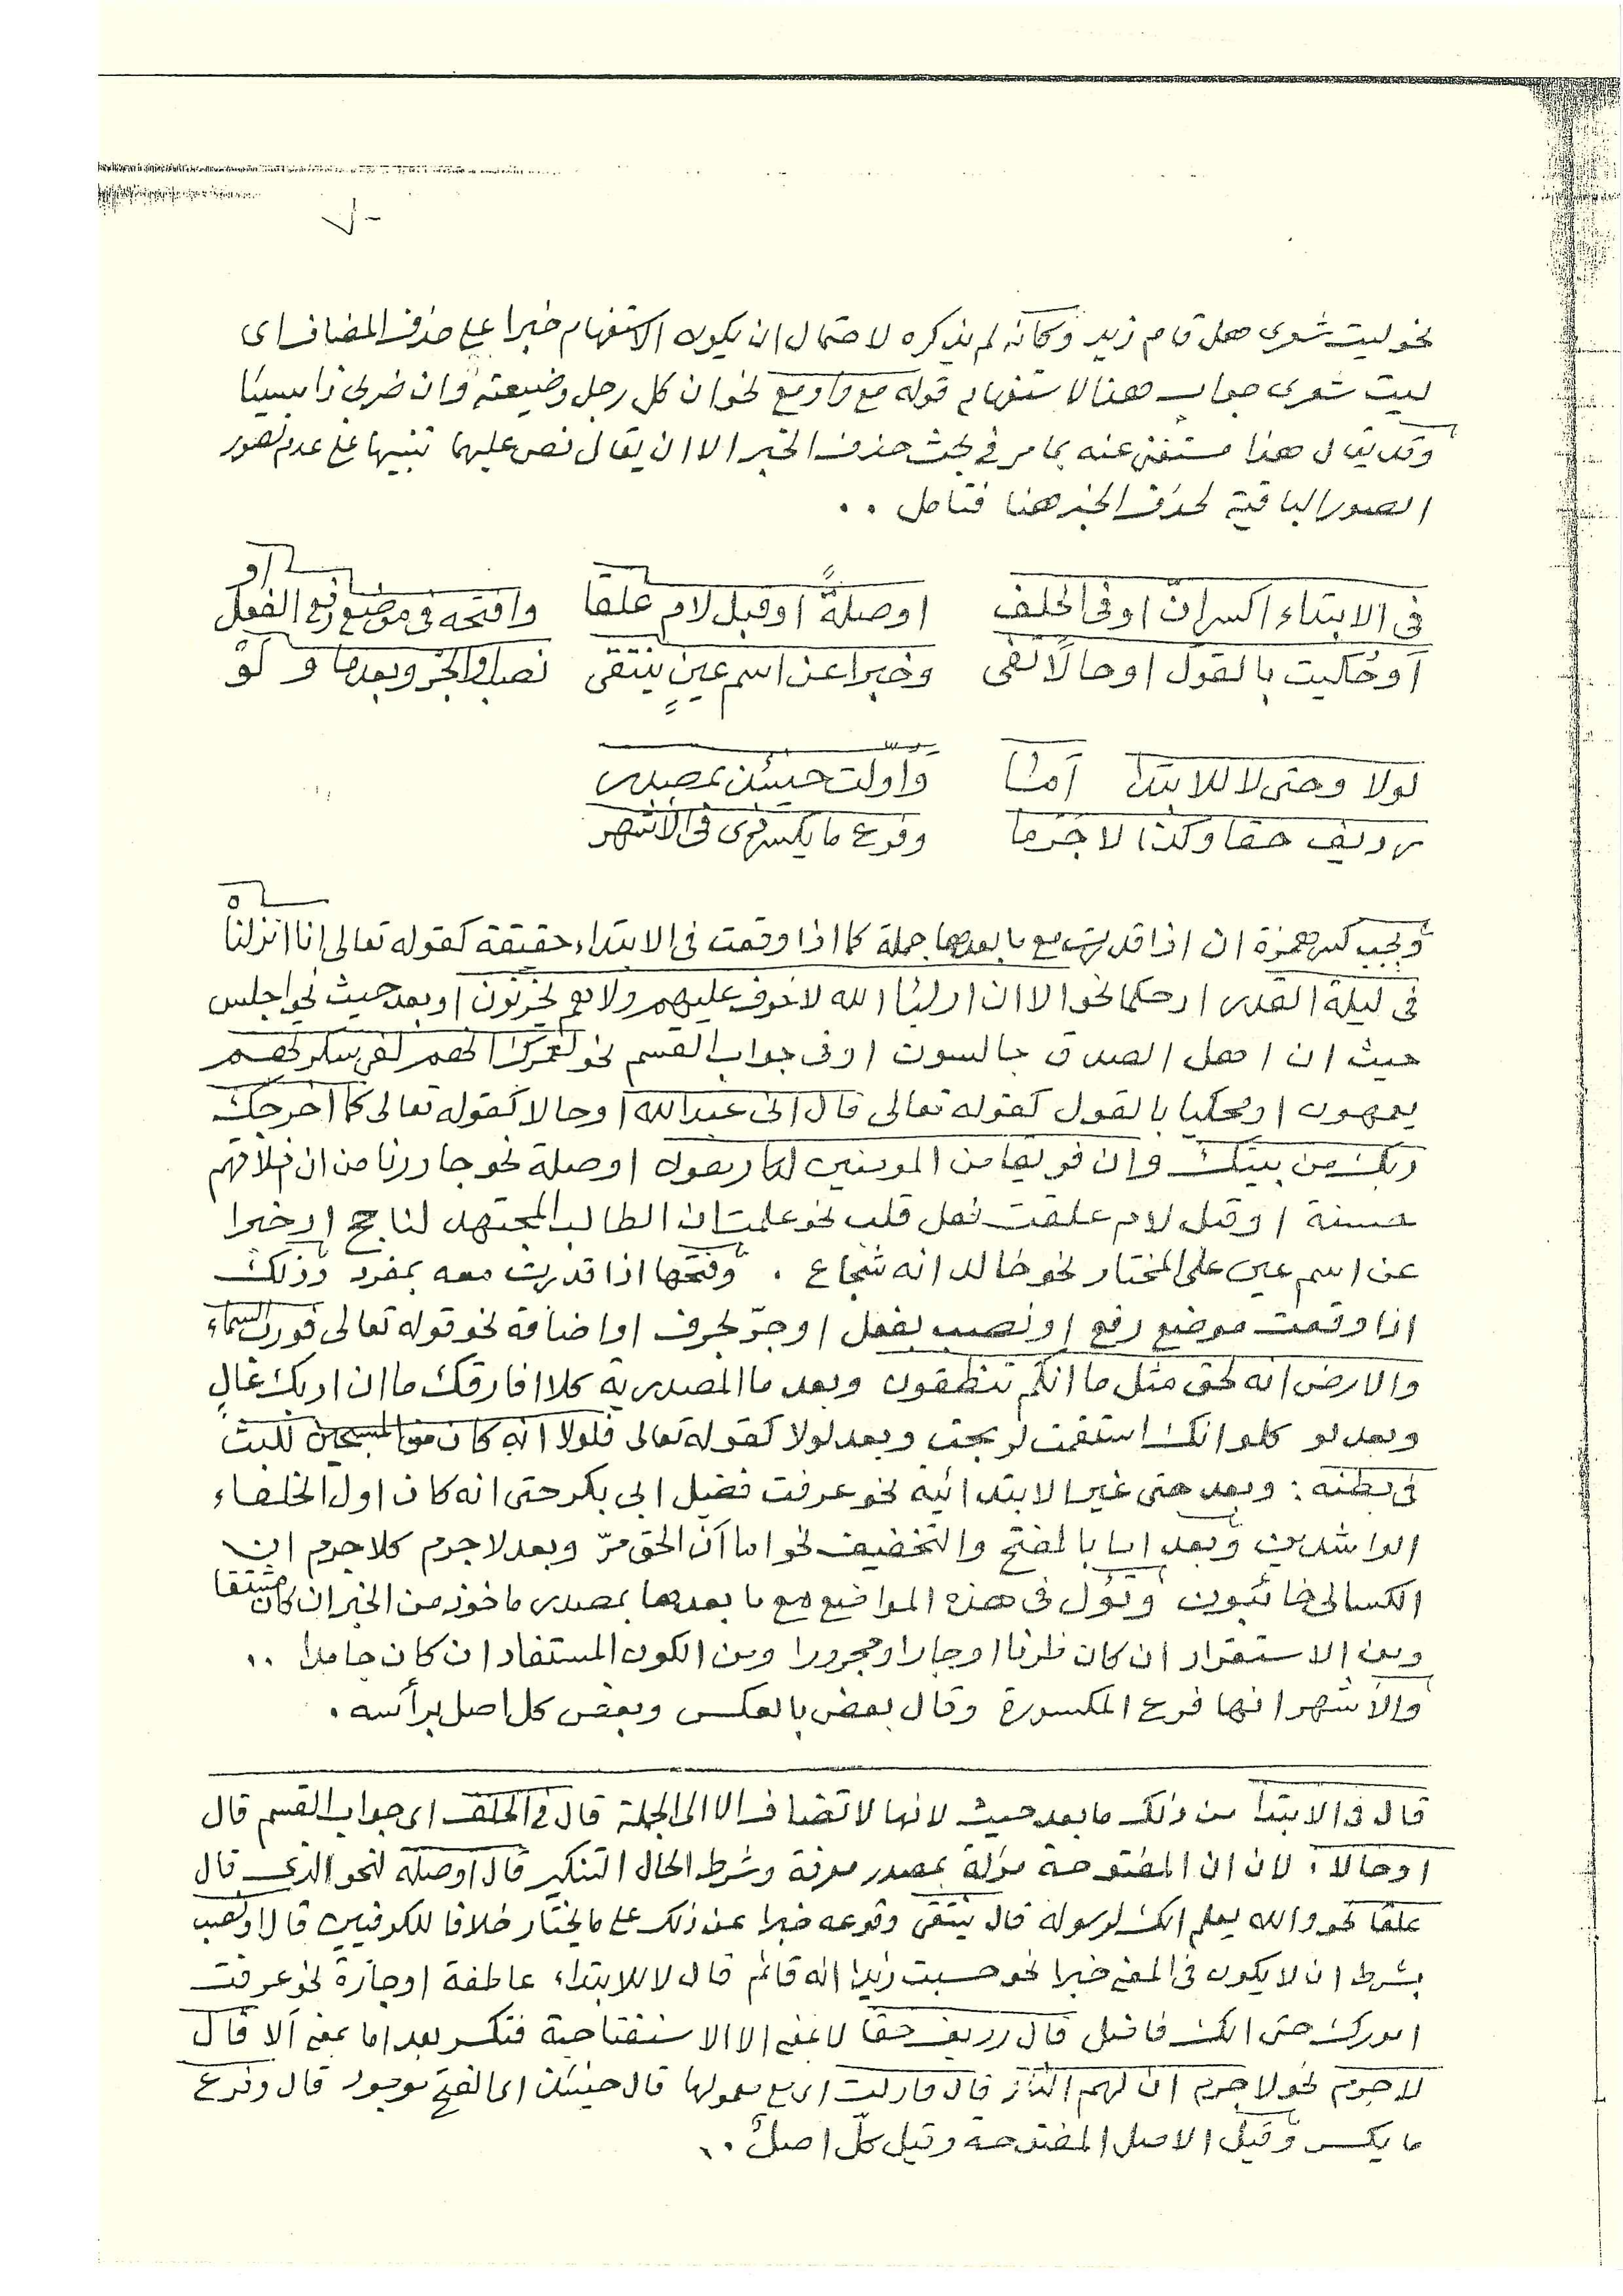 نحو ليت شعرى هل قام زيد وكانه لم يذكره لاحتمال ان يكون الاستفهام خبرا على حذف المضاف اى
ليت شعرى جواب هذا الاستفهام قوله مع واو مع نحو ان كل رجل وضيعته وان ضربى زيدا مسيئا
وقد يقال هذا مستغنى عنه بما مر فى بحث حذف الخبر الا ان يقال نص عليهما تنبيها على عدم تصور
الصور الباقية لحذف الخبر هنا فتامل ..
فى الابتداء اكسر ان او فى الحلف اوصلةً او قبل لام علقا وافتحه فى موضع رفع الفعل او
او حُكيت بالقول او حالًا تفى وخبرا عن اسم عينٍ ينتقى نصب والجر وبعد ما و لَوْ
لولا وحتى لا للابتدا امّا وأولت حينئذ بمصدر
رديف حقا وكذا لا جَرَما وفرع ما يكسر هى فى الاشهر
ويجب كسر همزة ان اذا قدرت مع ما بعدها جملة كما اذا وقعت فى الابتداء حقيقة كقوله تعالى انا انزلناه
فى ليلة القدر او حكما نحو الا ان اولياء الله لا خوف عليهم ولا هم يحزنون او بعد حيث نحو اجلس
حيث ان اهل الصدق جالسون او فى جواب القسم نحو لعمرك انهم لفى سكرتهم
يعمهون او محكيا بالقول كقوله تعالى قال انى عبد الله او حالا كقوله تعالى كما اخرجك
ربك من بيتك وان فريقا من المومنين لكارهون او صلة نحو جاورنا من ان اخلاقهم
حسنة او قبل لام علقت فعل قلب نحو علمت ان الطالب المجتهد لناجح او خبرا
عن اسم عين على المختار نحو خالد انه شجاع . وفتحها اذا قدرت معه بمفرد وذلك
اذا وقعت موضع رفع او نصب بفعل او جرّ بحرف او اضافة نحو قوله تعالى فورب السماء
والارض انه لحق مثل ما انكم تنطقون وبعد ما المصدرية كلا افارقك ما ان اربك غالٍ
وبعد لو كلو انك استقمت لربحت وبعد لولا كقوله تعالى فلولا انه كان من المسبحين للبث
فى بطنه : وبعد حتى غير الابتدائية نحو عرفت فضل ابى بكر حتى انه كان اول الخلفاء
الراشدين وبعد اما بالفتح والتخفيف نحو اما ان الحق مرّ وبعد لا جرم كلا جرم ان
الكسالى خائبون وتؤل فى هذه المواضع مع ما بعدها بمصدر ماخوذ من الخبر ان كان مشتقا
ومن الاستقرار ان كان ظرفا او جارا ومجرورا ومن الكون المستفاد ان كان جامدا ..
والاشهر انها فرع المكسورة وقال بعض بالعكس وبعض كل اصل برأسه .
قال فى الابتدا من ذلك ما بعد حيث لانها لا تضاف الا الى الجملة قال فى الحلف اى جواب القسم قال
او حالا . لان ان المفتوحة مؤلة بمصدر معرفة وشرط الحال التنكير قال او صلة نحو الذى قال
علقا نحو والله يعلم انك لرسوله قال ينتقى وقوعه خبرا عن ذلك على ما يختار خلافا للكوفيين قال او نصب
بشرط ان لا يكون فى المعنى خبرا نحو حسبت زيدا انه قائم قال لا للابتداء عاطفة او جارة نحو عرفت
امورك حتى انك فاضل قال رديف حقا لا بمعنى الا الاستفتاحية فتكسر بعد اما بمعنى ألا قال
لا جرم نحو لا جرم ان لهم النار قال واولت اى مع معمولها قال حينئذ اى الفتح موجود قال وفرع
ما يكسر وقيل الاصل المفتوحة وقيل كلّ اصلٌ ..